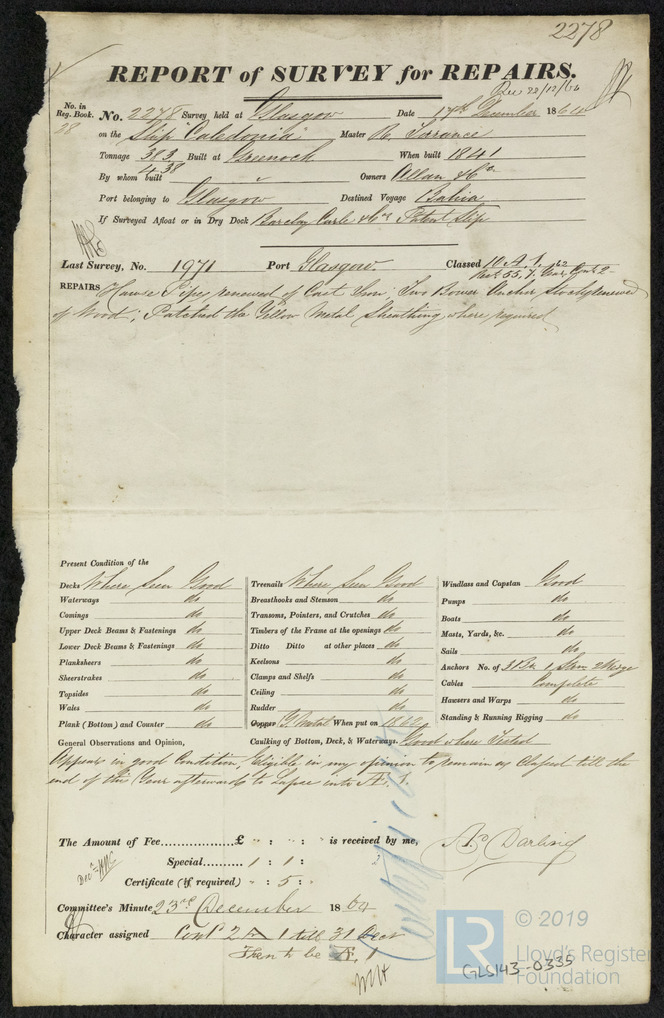 2278
REPORT of SURVEY for REPAIRS.
Rec 22/12/64
No. in Reg. Book. 28
No. 2278 Survey held at Glasgow Date 17th December 1864
on the Ship "Caledonia" Master R. Torrance
Tonnage 383 Built at Greenock When built 1841
438
By whom built Owners Allan & Co
Port belonging to Glasgow Destined Voyage Bahia
If Surveyed Afloat or in Dry Dock Barclay Curle & Co's Patent Slip
Last Survey, No. 1971 Port Glasgow. Classed 10 A.1. 62
Rest. 55, 7 Years, Cont. 2
REPAIRS Hawse Pipes renewed of Cast Iron; Two Bower Anchor Stocks renewed
of Wood; Patched the Yellow Metal Sheathing where required
Present Condition of the
Decks Where Seen Good
Waterways do
Comings do
Upper Deck Beams & Fastenings do
Lower Deck Beams & Fastenings do
Planksheers do
Sheerstrakes do
Topsides do
Wales do
Plank (Bottom) and Counter do
Treenails Where Seen Good
Breasthooks and Stemson do
Transoms, Pointers, and Crutches do
Timbers of the Frame at the openings do
Ditto Ditto at other places do
Keelsons do
Clamps and Shelfs do
Ceiling do
Rudder do
Copper Y. Metal When put on 1862
Caulking of Bottom, Deck, & Waterways. Good where Tested
Windlass and Capstan Good
Pumps do
Boats do
Masts, Yards, &c. do
Sails do
Anchors No. of 3 Br. 1 Strm 2 Kedge
Cables Complete
Hawsers and Warps do
Standing & Running Rigging do
General Observations and Opinion,
Appears in good Condition, Eligible in my opinion to remain as Classed till the
end of this Year afterwards to Lapse into Æ. 1.
The Amount of Fee £ " : " : " is received by me,
Special 1 : 1 :
Certificate (if required) " : 5 :
Ad. Darling
Committee's Minute 23rd December 1864
Character assigned Cont 2 1 till 31 Decr
Then to be Æ. 1
© 2019
LR
Lloyd's Register
Foundation
GLS143-0335